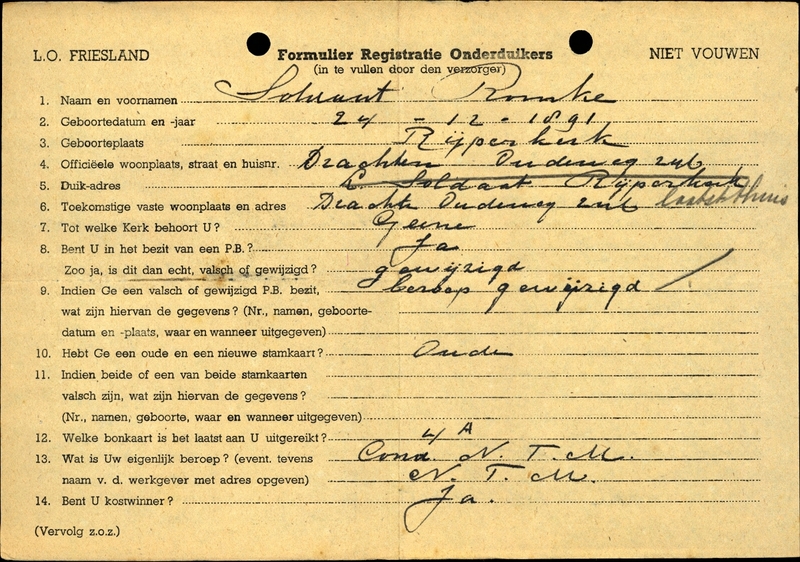 L.O. FRIESLAND Formulier Registratie Onderduikers NIET VOUWEN
(in te vullen door den verzorger)
1. Naam en voornamen Soldaat Romke
2. Geboortedatum en -jaar 24 - 12 - 1891
3. Geboorteplaats Rijperkerk
4. Officiëele woonplaats, straat en huisnr. Drachten Oudeweg zijl
5. Duik-adres L. Soldaat Rijperkerk
6. Toekomstige vaste woonplaats en adres Dracht Oudeweg zijl thuis
7. Tot welke Kerk behoort U? Geene
8. Bent U in het bezit van een P.B.? Ja
Zoo ja, is dit dan echt, valsch of gewijzigd? gewijzigd
9. Indien Ge een valsch of gewijzigd P.B. bezit, beroep gewijzigd
wat zijn hiervan de gegevens? (Nr., namen, geboorte-
datum en -plaats, waar en wanneer uitgegeven)
10. Hebt Ge een oude en een nieuwe stamkaart? Oude
11. Indien beide of een van beide stamkaarten
valsch zijn, wat zijn hiervan de gegevens?
(Nr., namen, geboorte, waar en wanneer uitgegeven)
12. Welke bonkaart is het laatst aan U uitgereikt? 4 A
13. Wat is Uw eigenlijk beroep? (event. tevens Cond. N. T. M.
naam v. d. werkgever met adres opgeven) N. T. M.
14. Bent U kostwinner? Ja.
(Vervolg z.o.z.)